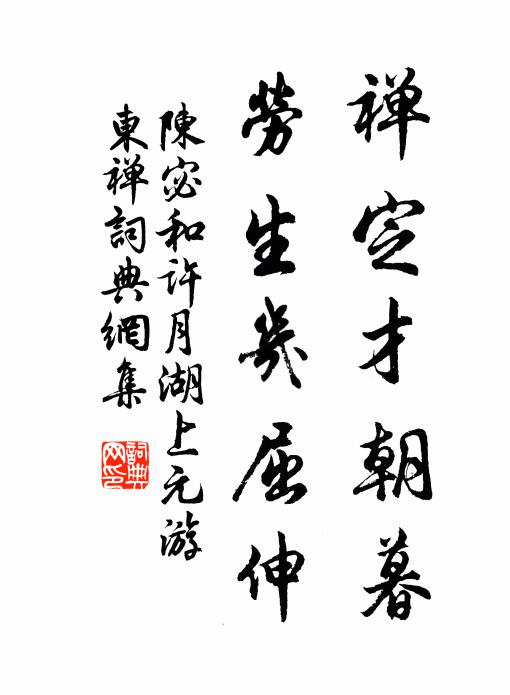 禅定才朝暮
劳生几屈伸
陳宓和许月湖上元游
東禅詞典網集
詞典网印